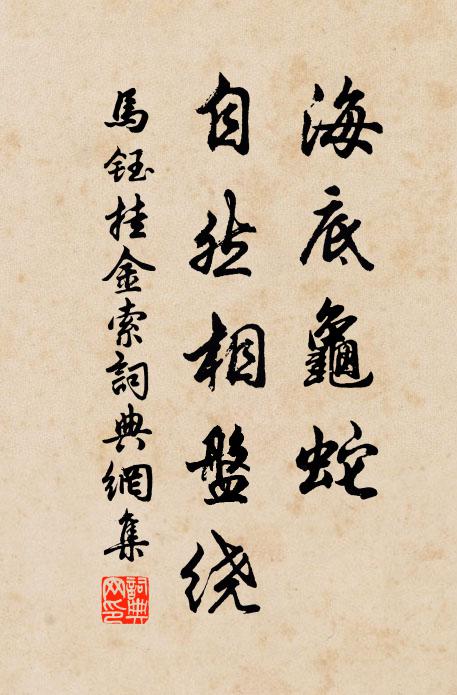 海底龜蛇
自然相盤绕
馬鈺挂金索詞典網集
詞典网印